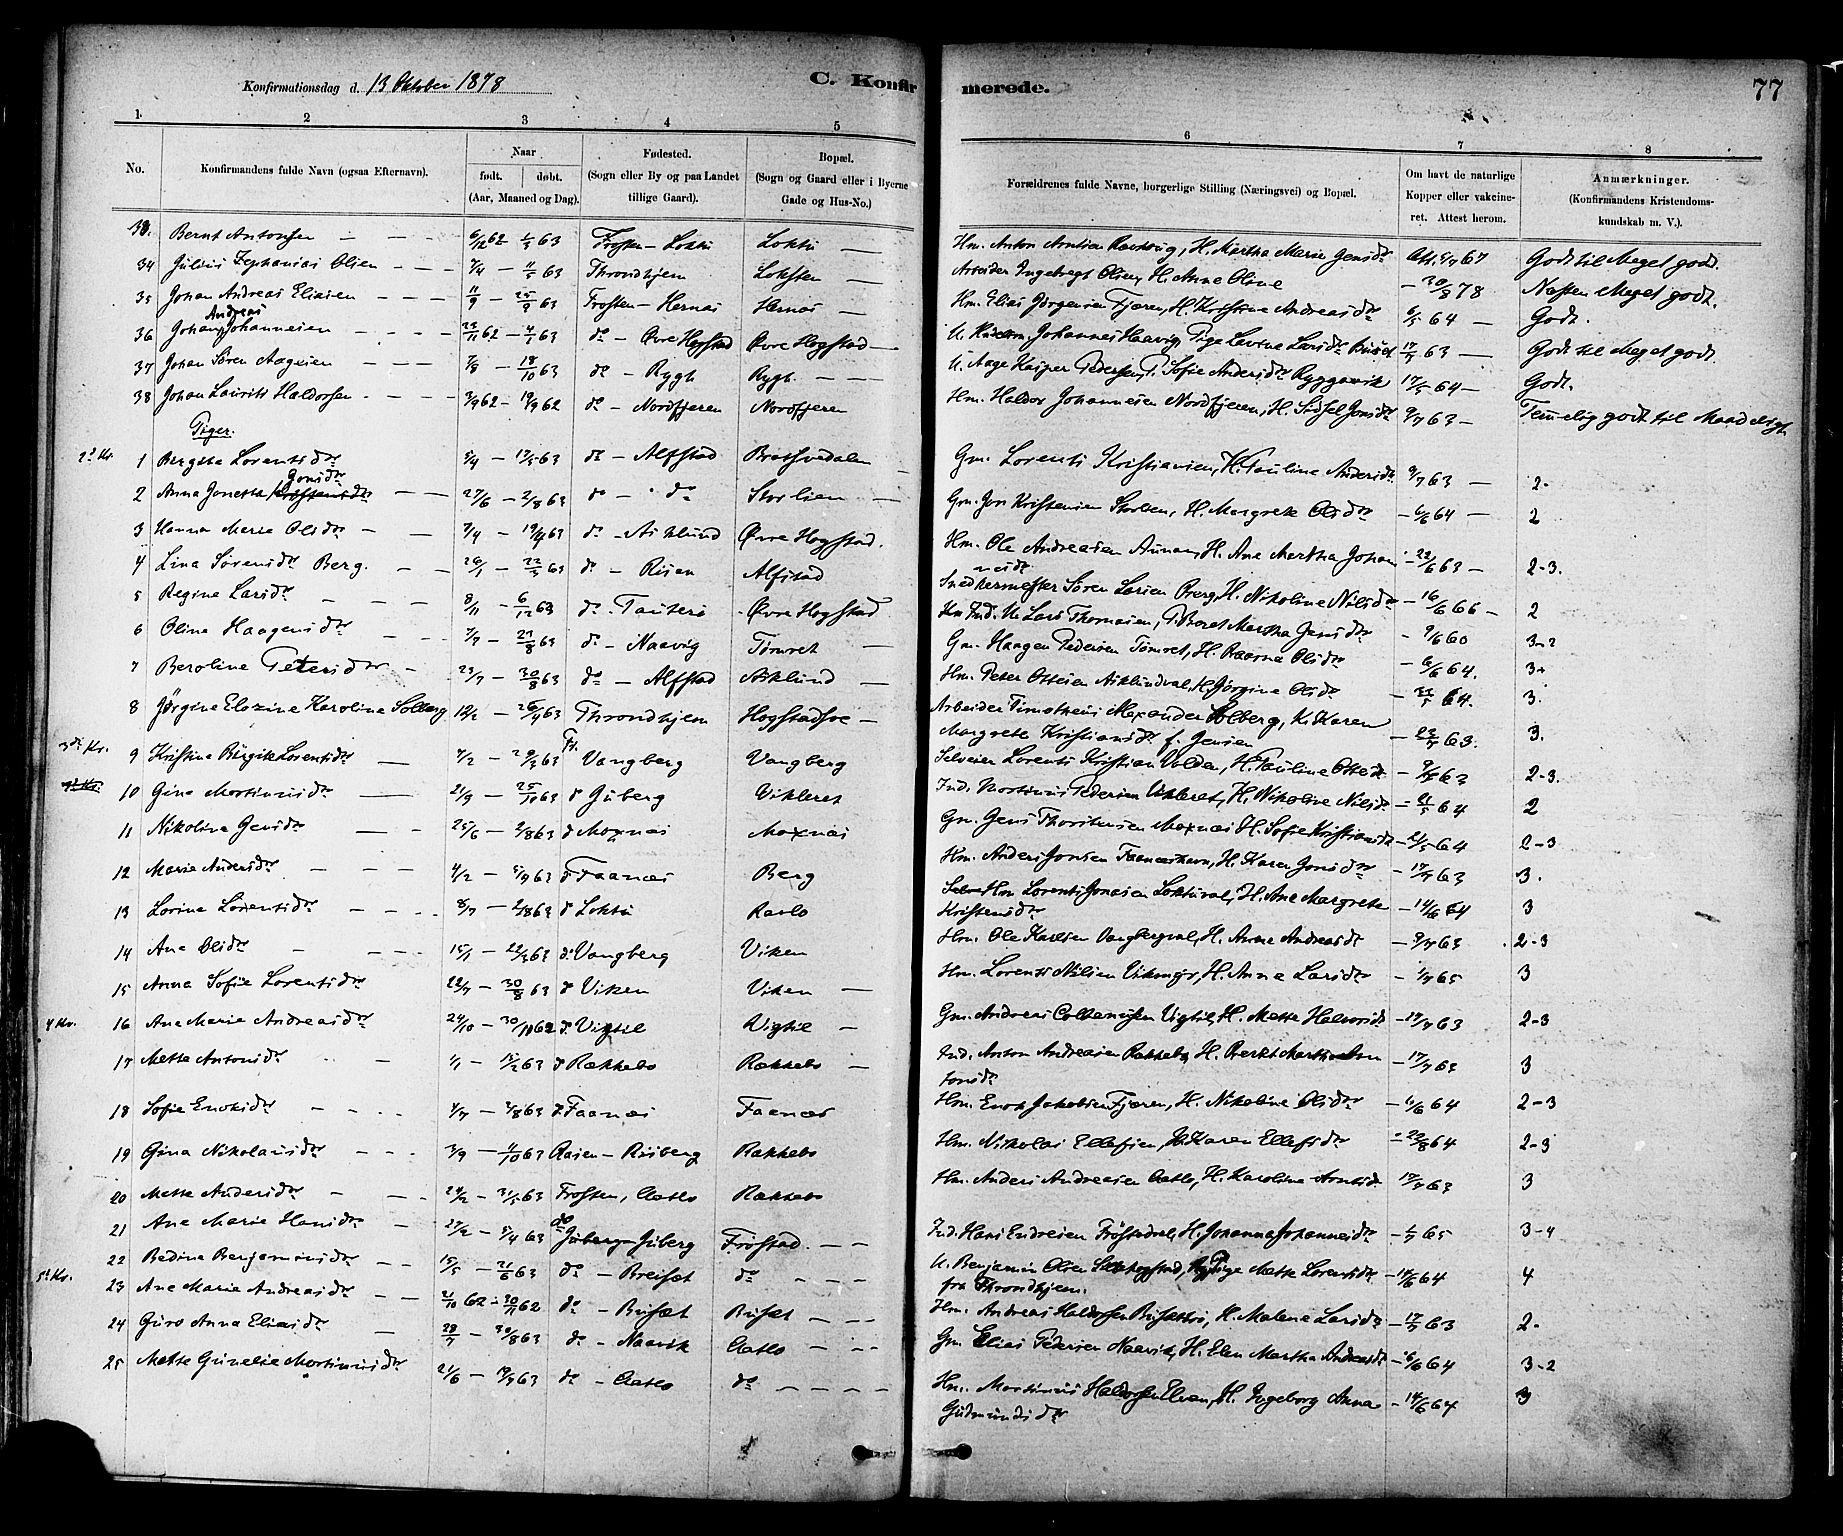 Konfirmationsdag d. 13 Oktober 1878 C. Konfirmerede. 77
1. 2 3 4 5 6 7 8
No. Konfirmandens fulde Navn (ogsaa Efternavn). Naar født. døbt. (Aar, Maaned og Dag). Fødested. (Sogn eller By og paa Landet tillige Gaard). Bopæl. (Sogn og Gaard eller i Byerne Gade og Hus-No.) Forældrenes fulde Navne, borgerlige Stilling (Næringsvei) og Bopæl. Om havt de naturlige Kopper eller vakcineret. Attest herom. Anmærkninger. (Konfirmandens Kristendomskundskab m. V.).
33. Bernt Antonsen 6/12 62 1/3 63 Frosten - Loktu Loktu Hm. Anton Arntsen H. Martha Marie Jensdtr 67 Godt til Meget godt.
34 Julius Zephanias Olsen 7/4 - 11/5 63 Throndhjem Loksten Arbeider Ingebregt Olsen, H. Anne Oline - 30/8 78 Næsten Meget godt.
35 Johan Andreas Eliasen 11/9 - 25/9 63 Frosten - Hernæs Hernæs Hm. Elias Jørgensen Fjæren, H. Kristine Andreasdtr 6/5 64 - Godt.
36 Johan Andreas Johannesen 23/11 62 - 4/1 63 do - Øvre Hogstad Øvre Hogstad U. Johannes Haavig, Pige Lavrine Larsdtr 17/7 63 - Godt til Meget godt
37 Johan Sören Aagesen 7/8 - 18/10 63 do - Rygh Rygh. U. Aage Kasper Pedersen, P. Sofie Andersdtr Ryggavik 17/5 64 - Godt.
38 Johan Laurits Haldorsen 3/9 62 - 19/9 62 do - Nordfjeren Nordfjeren Hm. Haldor Johannesen Nordfjeren, H. Sidsel Jonsdtr 9/7 63 - Temmelig godt til Maadeligt
Piger.
2d Kr. 1 Birgitta Lorentsdtr 3/4 - 17/5 63 do - Alfstad Brottsvedalen Gm. Lorents Kristiansen, H. Pauline Andersdtr 9/7 63 - 2-
2 Anna Jonetta Jonsdtr 27/6 - 2/8 63 do - do Storlien Gm. Jon Kristensen Storlien, H. Margrete Olsdtr - 6/6 64 - 2
3 Hanna Marie Olsdtr 7/4 - 19/4 63 do - Aiklund Øvre Hogstad. Hm. Ole Andreasen Aunan, H. Ane Martha Johannesdtr - 22/6 63 - 2-3.
4 Lina Sörensdtr Berg. 26/1 - 22/3 63 do - Risen Alfstad Snedkermester Sören Larsen Berg, H. Nikoline Nilsdtr - 16/6 66 - 2
5 Regine Larsdtr 8/11 - 6/12 63 do - Tauterö Øvre Hogstad U. Lars Thomasen, P. Beret Martha Jensdtr - 9/6 60 3-2
6 Oline Haagensdtr 7/7 - 23/8 63 do - Naavig Tömret Gm. Haagen Pedersen Tömret, H. Olsdtr - 6/6 64. 3+
7 Beroline Petersdtr 23/7 - 30/8 63 do - Alfstad Aiklund Hm. Peter Ottesen Aiklundval, H. Jørgine Olsdtr - 22/5 64. 3.
8 Jørgine Elozine Karoline Solberg 12/2 - 26/4 63 Throndhjem Hogstadsve Arbeider Timotheus Alexander Solberg, H. Karen Margrete Kristiansdtr f. Jensen - 23/7 63. 3.
3d Kr. 9 Kristine Birgitte Lorentsdtr 4/2 - 29/3 63 Fr. Vangberg Vangberg Selveier Lorents Kristian Volden, H. Pauline Ottesdtr - 9/7 63 2-3.
10 Gina Mortinusdtr 21/9 - 25/10 63 d Juberg Vikleret Ind. Mortinus Pedersen Vikleret, H. Nikoline Nilsdtr - 21/5 64 2
11 Nikoline Jensdtr 25/6 - 2/8 63 d Moxnæs Moxnæs Gm. Jens Thorstensen Moxnæs H. Sofie Kristiansdtr - 21/5 64 2-3
12 Marie Andersdtr 4/2 - 5/9 63 d Faanæs Berg Hm. Anders Jonsen H. Karen Jonsdtr - 17/7 63 3.
13 Lorine Lorentsdtr 8/7 - 2/8 63 d Loktu Ravlo Hm Lorents Jonasen Loktuval, H. Ane Margrete Kristensdtr - 14/6 64 3
14 Ane Olsdtr 15/1 - 22/3 63 d. Vangberg Viken Hm. Ole Karlsen Vangbergval, H. Anne Andreasdtr - 9/7 63 2-3
15 Anna Sofie Lorentsdtr 22/7 - 30/8 63 d Viken Viken Hm. Lorents Nilsen H. Anna Larsdtr - 1/7 65 3
4 Kr. 16 Ane Marie Andreasdtr 24/10 - 30/11 62 d. Vigtil Vigtil Gm. Andreas Vigtil, H. Mette Halvorsdtr - 17/7 63 2-3
17 Mette Antonsdtr 1/1 - 15/2 63 d Rækkebo Rækkebo Ind. Anton Andreasen Rækkebo, H. Antonsdtr - 17/7 63 3
18 Sofie Enoksdtr 4/7 - 2/8 63 d. Faanæs Faanæs Hm. Enok Jakobsen Fjæren, H. Nikoline Olsdtr - 6/6 64 2-3
19 Gina Nikolaisdtr 3/9 - 11/10 63 Aasen - Risberg Rækkebo Hm. Nikolai Ellefsen, H. Karen Ellefsdtr - 22/8 64 2-3
20 Mette Andersdtr 24/2 - 31/5 63 Frosten, Aatlo Rækkebo Hm. Anders Andreasen Aatlo, H. Karoline Arntsdtr 17/7 63 3
21 Ane Marie Hansdtr 27/2 - 5/4 63 do Juberg Fröstad. Ind. Hans Endresen Fröstadval, H. Johanna Johannesdtr - 1/7 65 3-4
22 Bedina Benjaminsdtr 15/5 - 21/6 63 do - Breisæt do U. Benjamin Olsen Pige Mette Lorentsdtr fra Throndhjem. - 14/6 64 4
5t Kr. 23 Ane Marie Andreasdtr 21/10 62 - 30/11 62 do - Busæt Busæt Hm. Andreas Haldorsen H. Malene Larsdtr - 17/7 63 2-
24 Guro Anna Eliasdtr 28/7 - 30/8 63 do - Naavik Aatlo Gm. Elias Pedersen Naavik, H. Elen Martha Andreasdtr - 6/6 64 3-2
25 Mette Gunelie Mortinusdtr 21/6 - 19/7 63 do - Aatlo do Hm. Mortinus Haldorsen Elven, H. Ingeborg Anna Gudmundsdtr - 14/6 64 3